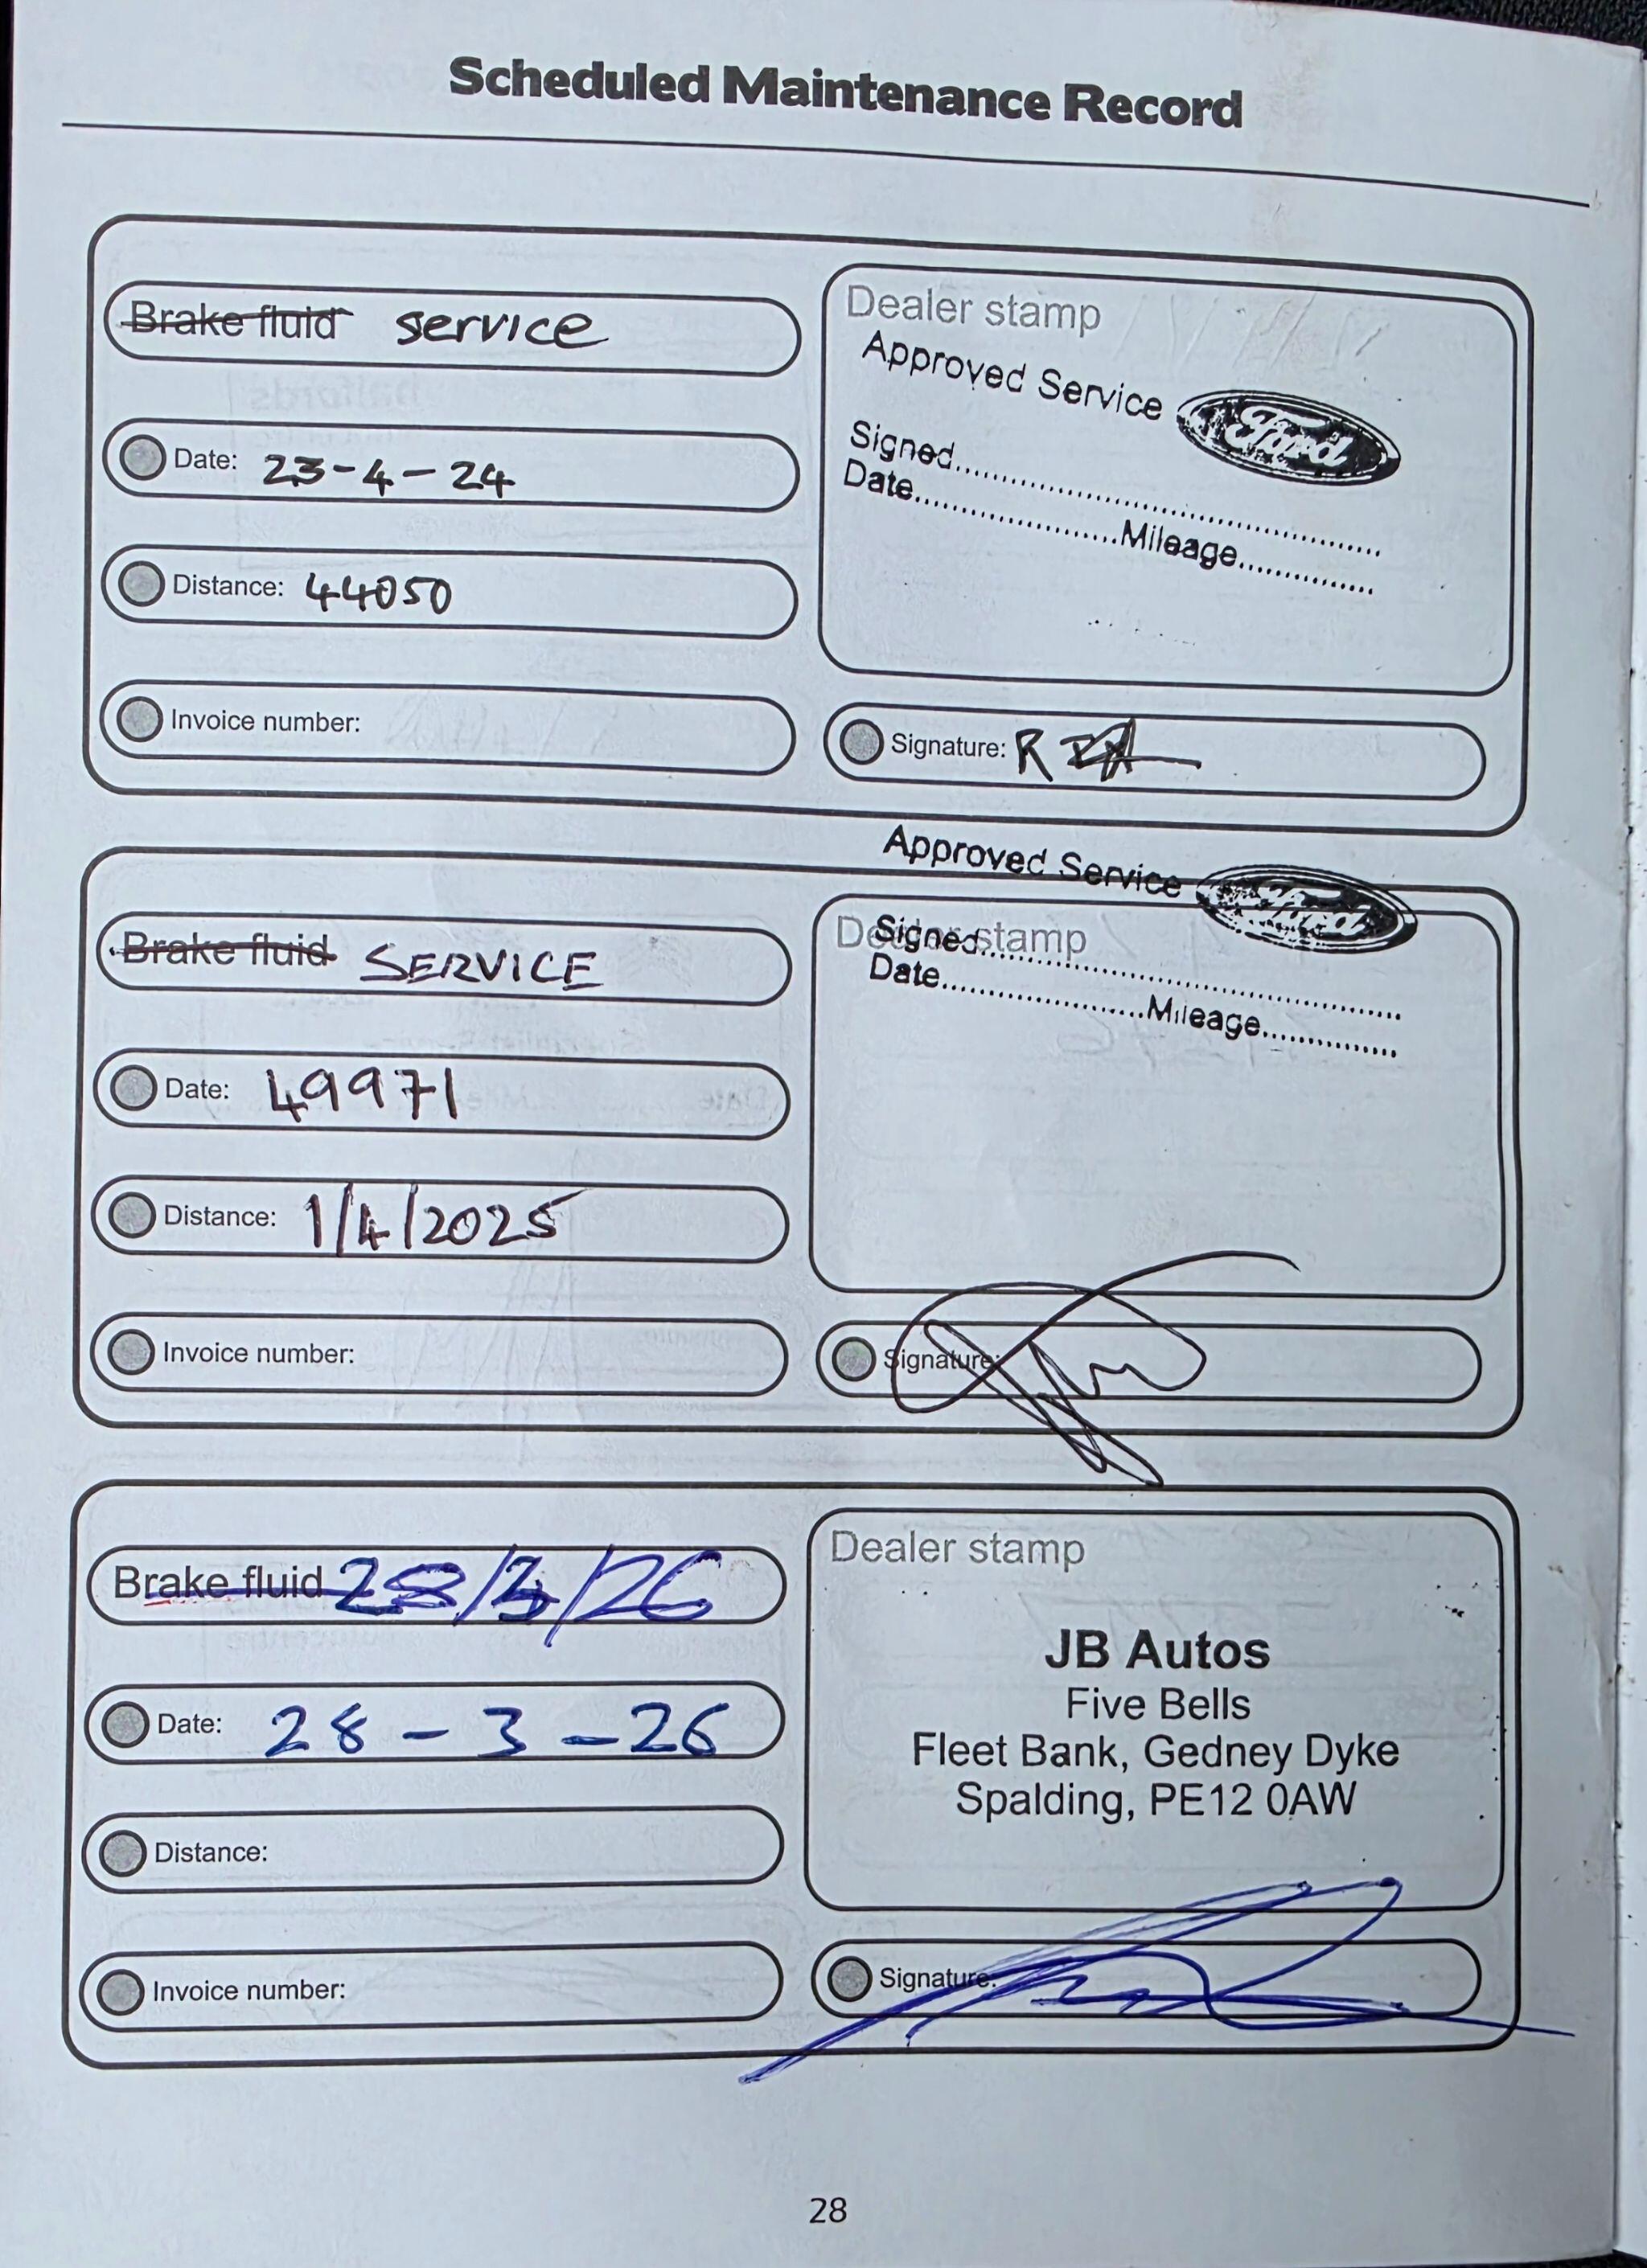 Scheduled Maintenance Record
Brake fluid service
Date: 23-4-24
Distance: 44050
Invoice number:
Dealer stamp
Approved Service Ford
Signed
Date Mileage
Signature:
Approved Service Ford
Brake fluid SERVICE
Date: 49971
Distance: 1/4/2025
Invoice number:
Dealer stamp
Signed
Date Mileage
Signature:
Brake fluid 28/3/26
Date: 28-3-26
Distance:
Invoice number:
Dealer stamp
JB Autos
Five Bells
Fleet Bank, Gedney Dyke
Spalding, PE12 0AW
Signature:
28